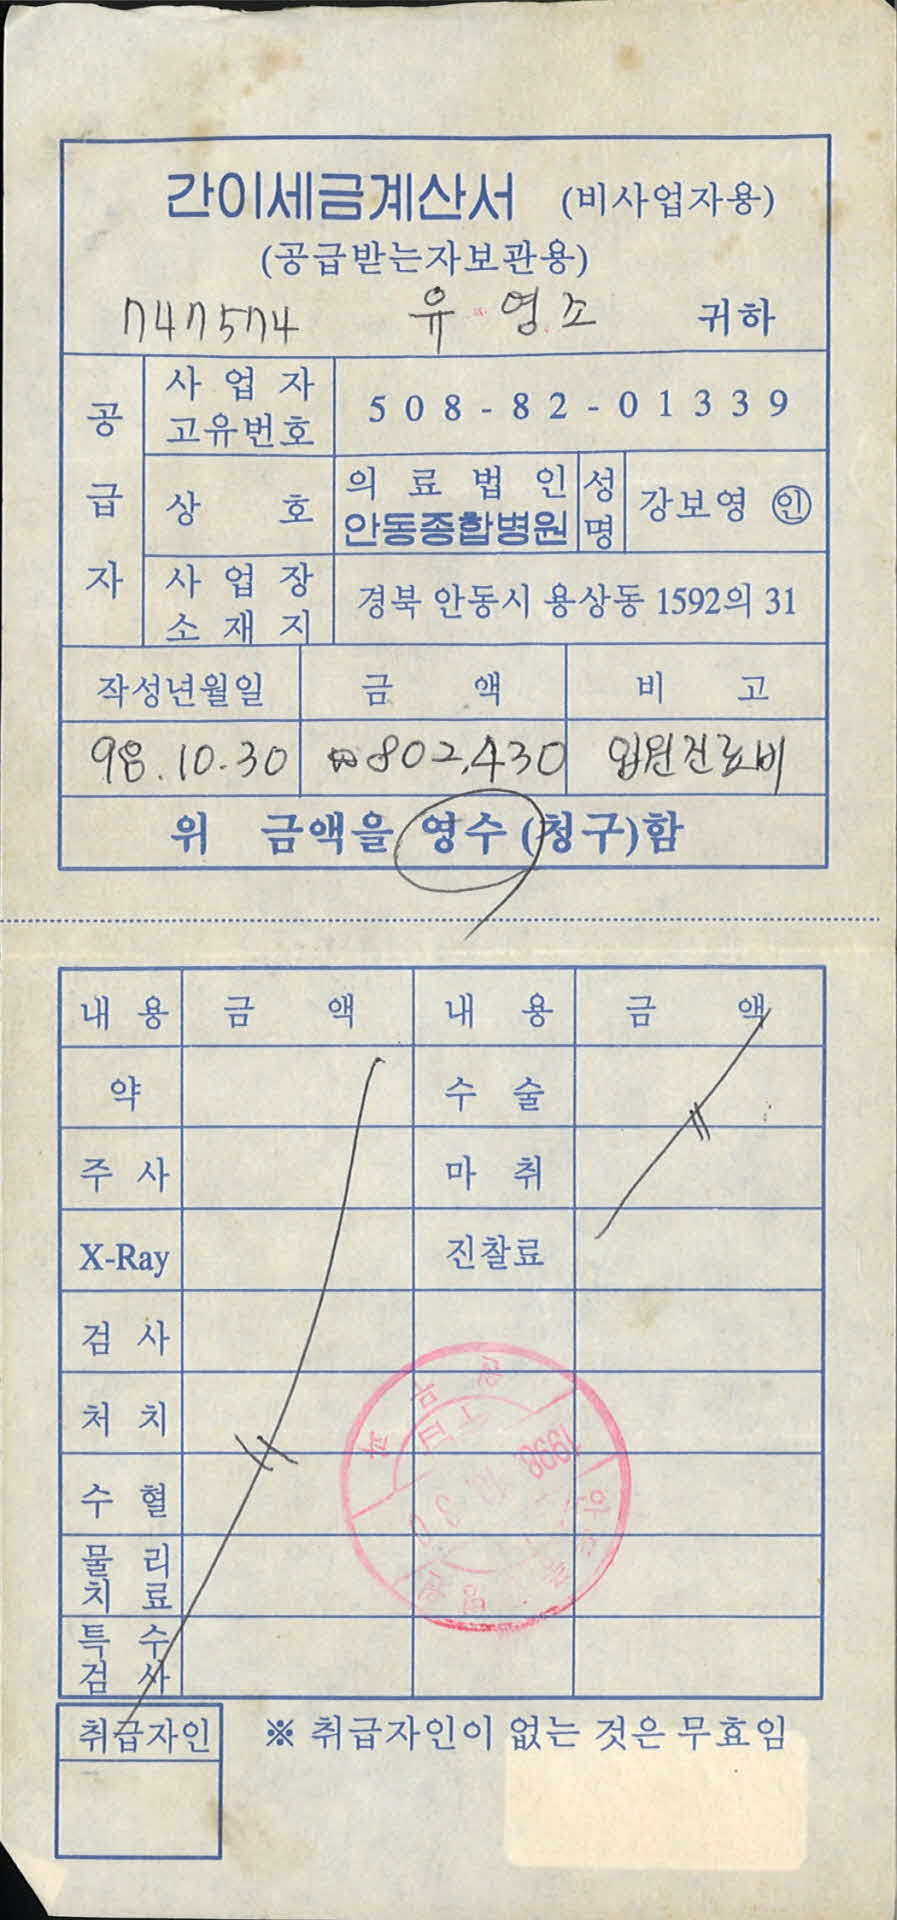 간이세금계산서 (비사업자용)
(공급받는자보관용)
747574 유영조 귀하
공급자
사업자고유번호 508-82-01339
상호 의료법인 안동종합병원 성명 강보영 ㊞
사업장소재지 경북 안동시 용상동 1592의 31
작성년월일 금액 비고
98.10.30 ₩802,430 입원진료비
위 금액을 영수(청구)함
내용 금액 내용 금액
약 수술
주사 마취
X-Ray 진찰료
검사
처치
수혈
물리치료
특수검사
1998. 10. 30
취급자인 ※ 취급자인이 없는 것은 무효임